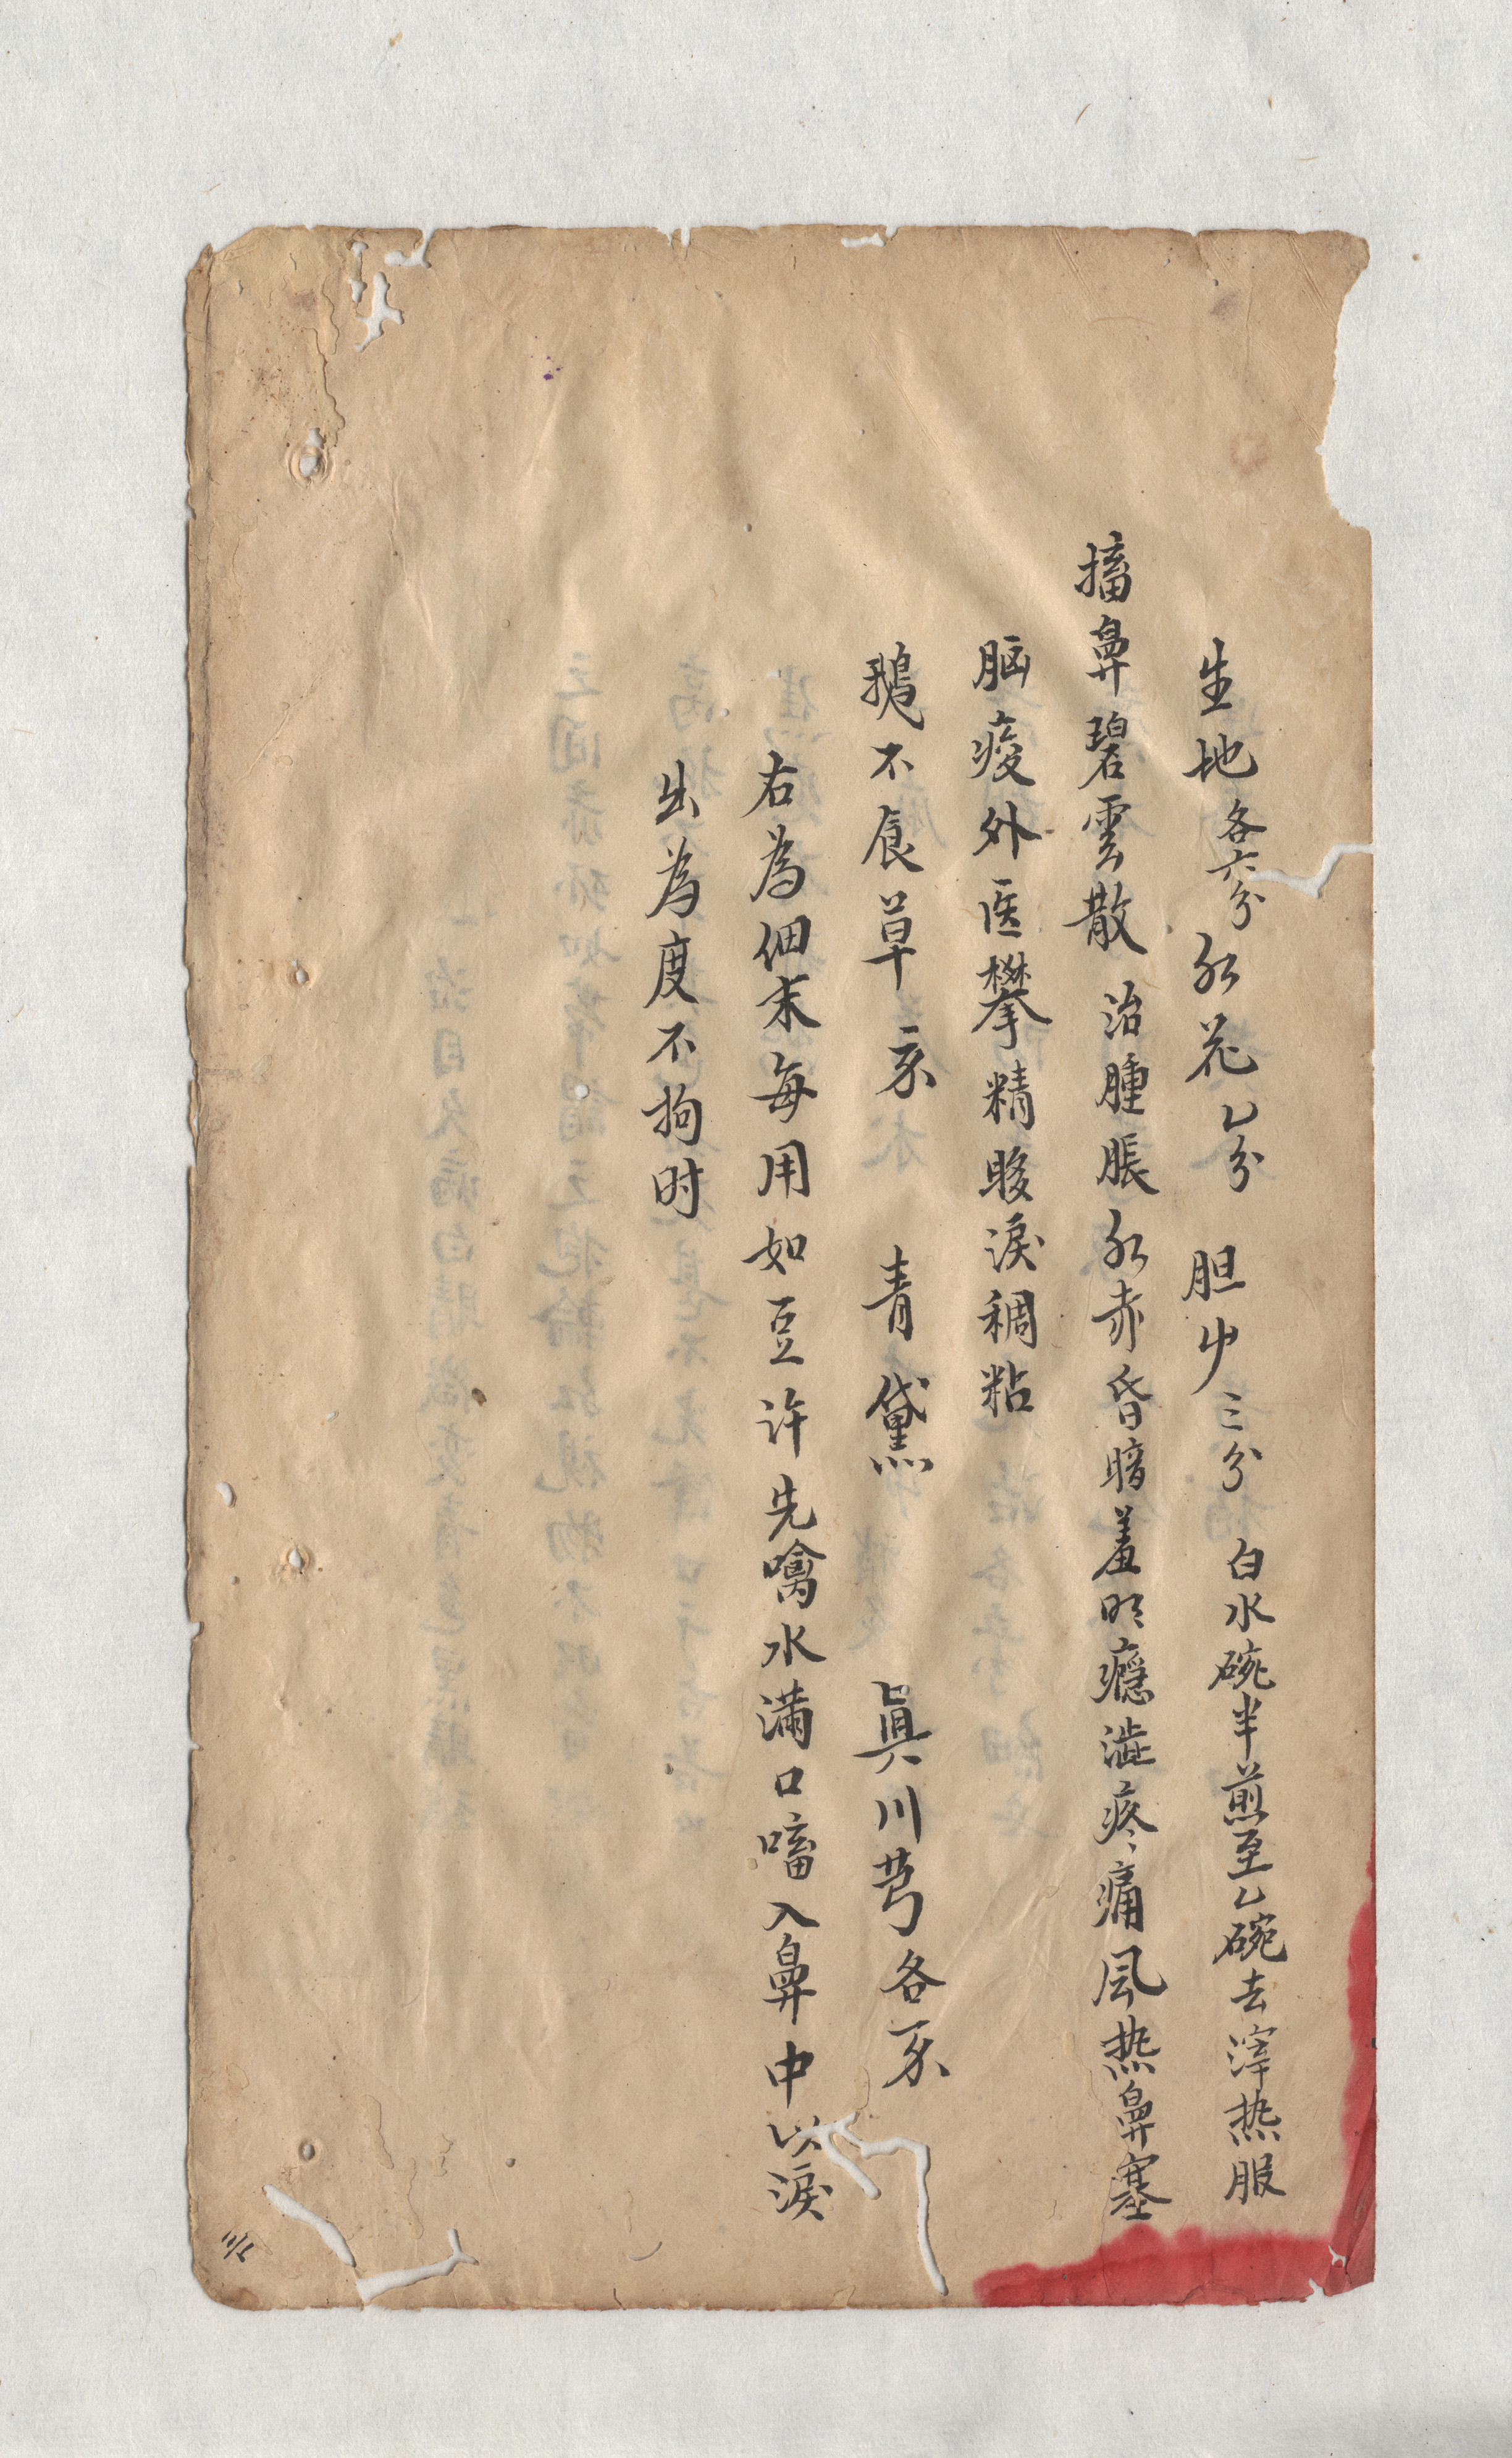 生地各六分 红花乚分 胆屮三分 白水碗半煎至乚碗去滓热服
搐鼻碧雲散 治腫脹红赤昏暗羞明癮澁疼痛风热鼻塞
脑痠外医攀精眵淚稠粘
鵝不食草 青黛 眞川芎各
右為细末每用如豆许先噙水满口㗜入鼻中以淚
出為度不拘时